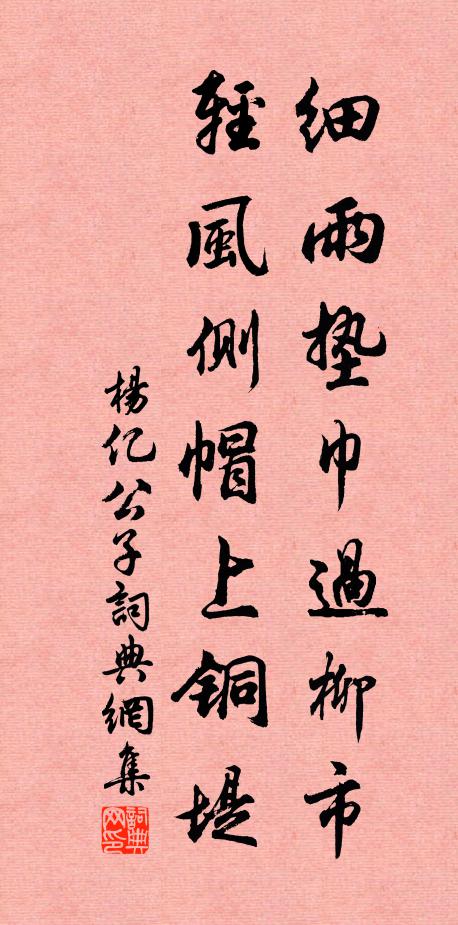 细雨垫巾過柳市
輕風側帽上銅堤
楊亿公子詞典網集
詞典网印